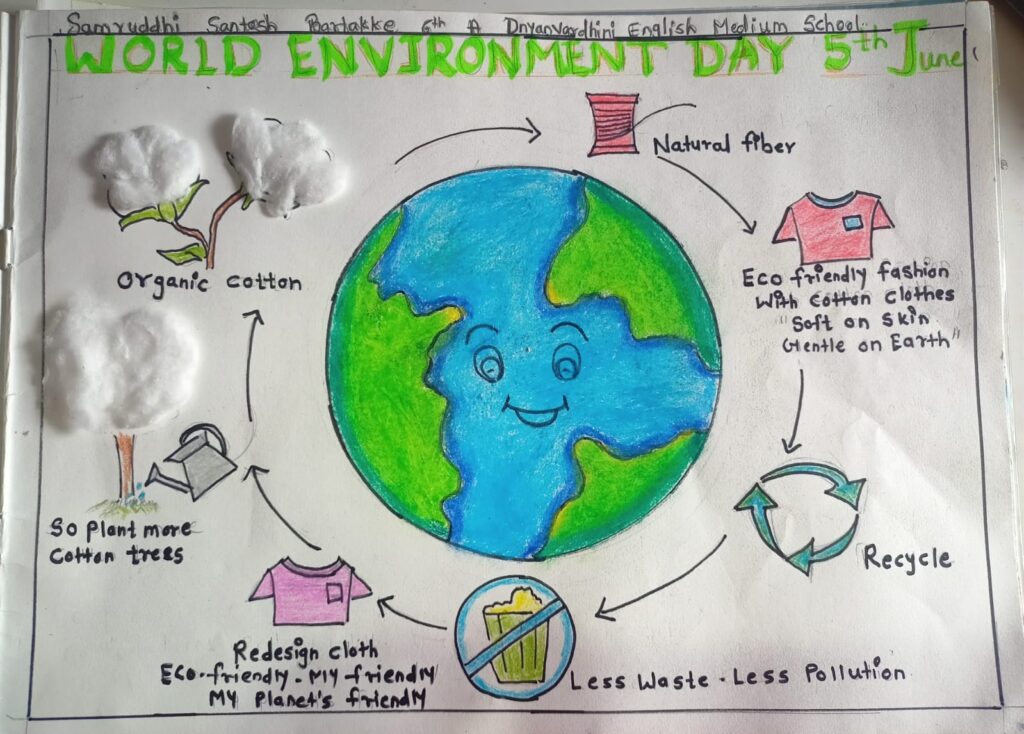 Samruddhi Santosh Bartakke 6th A Dnyanvardhini English Medium School.
WORLD ENVIRONMENT DAY 5th June
Natural fiber
Organic cotton
Eco friendly fashion
With cotton clothes
"Soft on skin
Gentle on Earth"
So plant more
cotton trees
Recycle
Redesign cloth
Eco-friendly - My friendly
My planet's friendly
Less Waste - Less Pollution